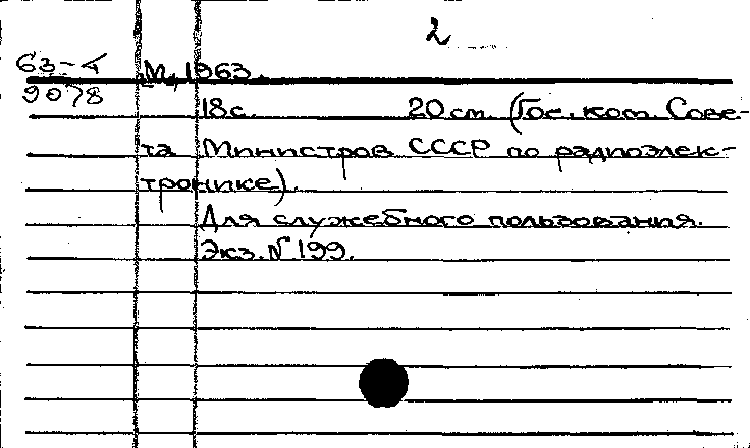 2
63-4 М., 1963.
9078
18 с. 20 см. (Гос. ком. Сове-
та Министров СССР по радиоэлек-
тронике).
Для служебного пользования.
Экз. № 199.